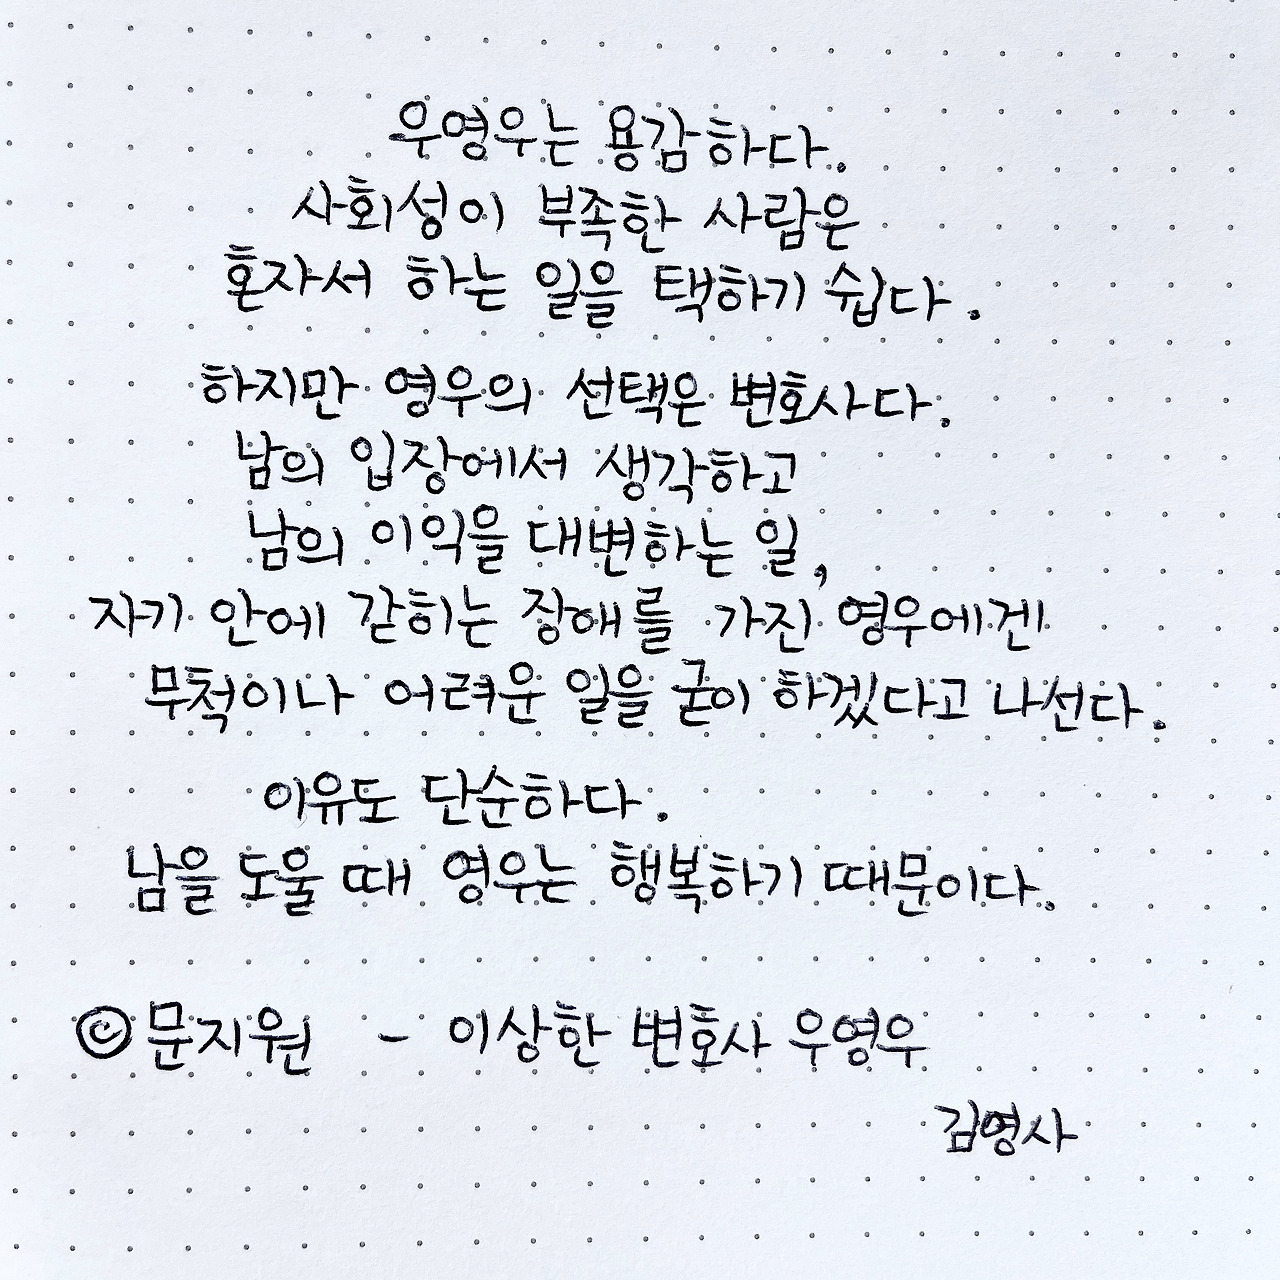 우영우는 용감하다.
사회성이 부족한 사람은
혼자서 하는 일을 택하기 쉽다.
하지만 영우의 선택은 변호사다.
남의 입장에서 생각하고
남의 이익을 대변하는 일,
자기 안에 갇히는 장애를 가진 영우에겐
무척이나 어려운 일을 굳이 하겠다고 나선다.
이유도 단순하다.
남을 도울 때 영우는 행복하기 때문이다.
©문지원 - 이상한 변호사 우영우
김영사